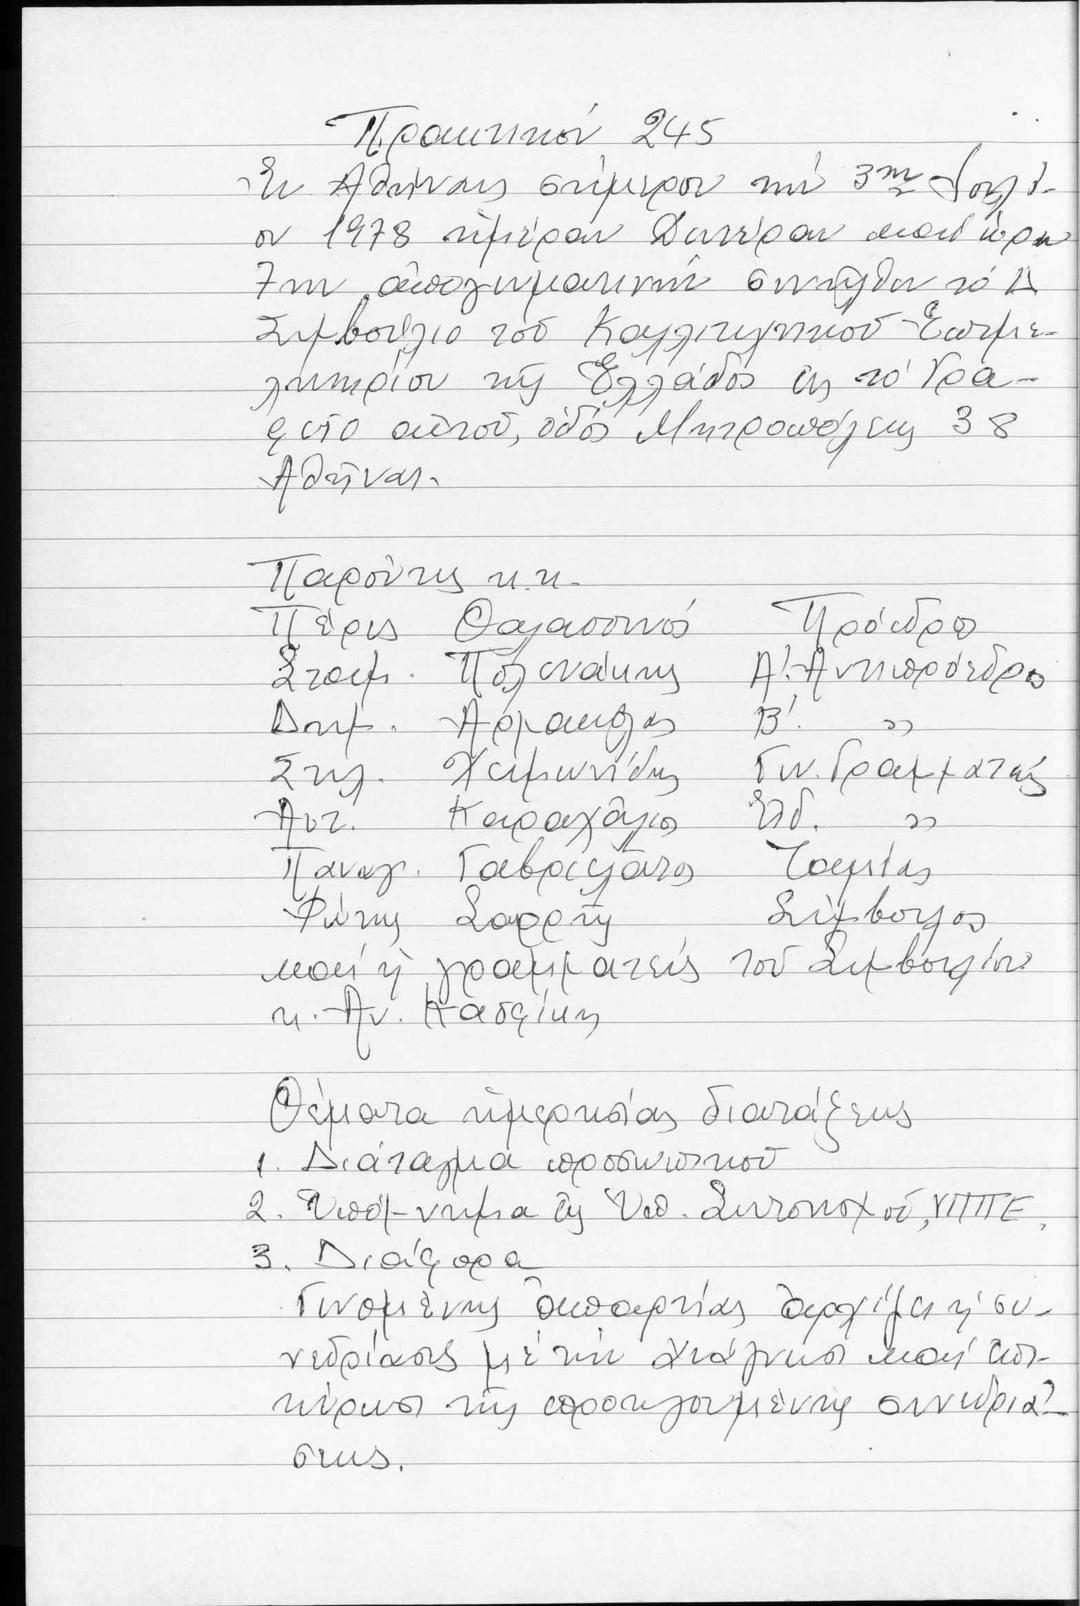 Πρακτικόν 245
Ἐν Ἀθήναις σήμερον τήν 3ην Ἰουλί-
ου 1978 ἡμέραν Δευτέραν καί ὥραν
7ην ἀπογευματινήν συνῆλθεν τό Δ
Συμβούλιο τοῦ Καλλιτεχνικοῦ Ἐπιμε-
λητηρίου τῆς Ἑλλάδος εἰς τό Γρα-
φεῖο αὐτοῦ, ὁδός Μητροπόλεως 38
Ἀθῆναι.
Παρόντες κ.κ.
Πέρις Θαλασσινός Πρόεδρος
Σταμ. Πολενάκης Α'. Ἀντιπρόεδρος
Δημ. Ἀρμακόλας Β'. ״
Στυλ. Χειμωνίδης Γεν. Γραμματεύς
Ἀντ. Καραχάλιος Εἰδ. ״
Παναγ. Γαβριελᾶτος Ταμίας
Φώτης Σαρρῆς Σύμβουλος
καί ἡ γραμματεύς τοῦ Συμβουλίου
κ. Αν. Κασφίκη
Θέματα ἡμερησίας διατάξεως
1. Διάταγμα προσωπικοῦ
2. Ὑπόμνημα εἰς Ὑπ. Συντονισμοῦ, ΥΠΠΕ,
3. Διάφορα
Γενομένης ἀπαρτίας ἀρχίζει ἡ συ-
νεδρίασις μέ τήν ἀνάγνωσι καί ἐπι-
κύρωσι τῆς προηγουμένης συνεδριά-
σεως.